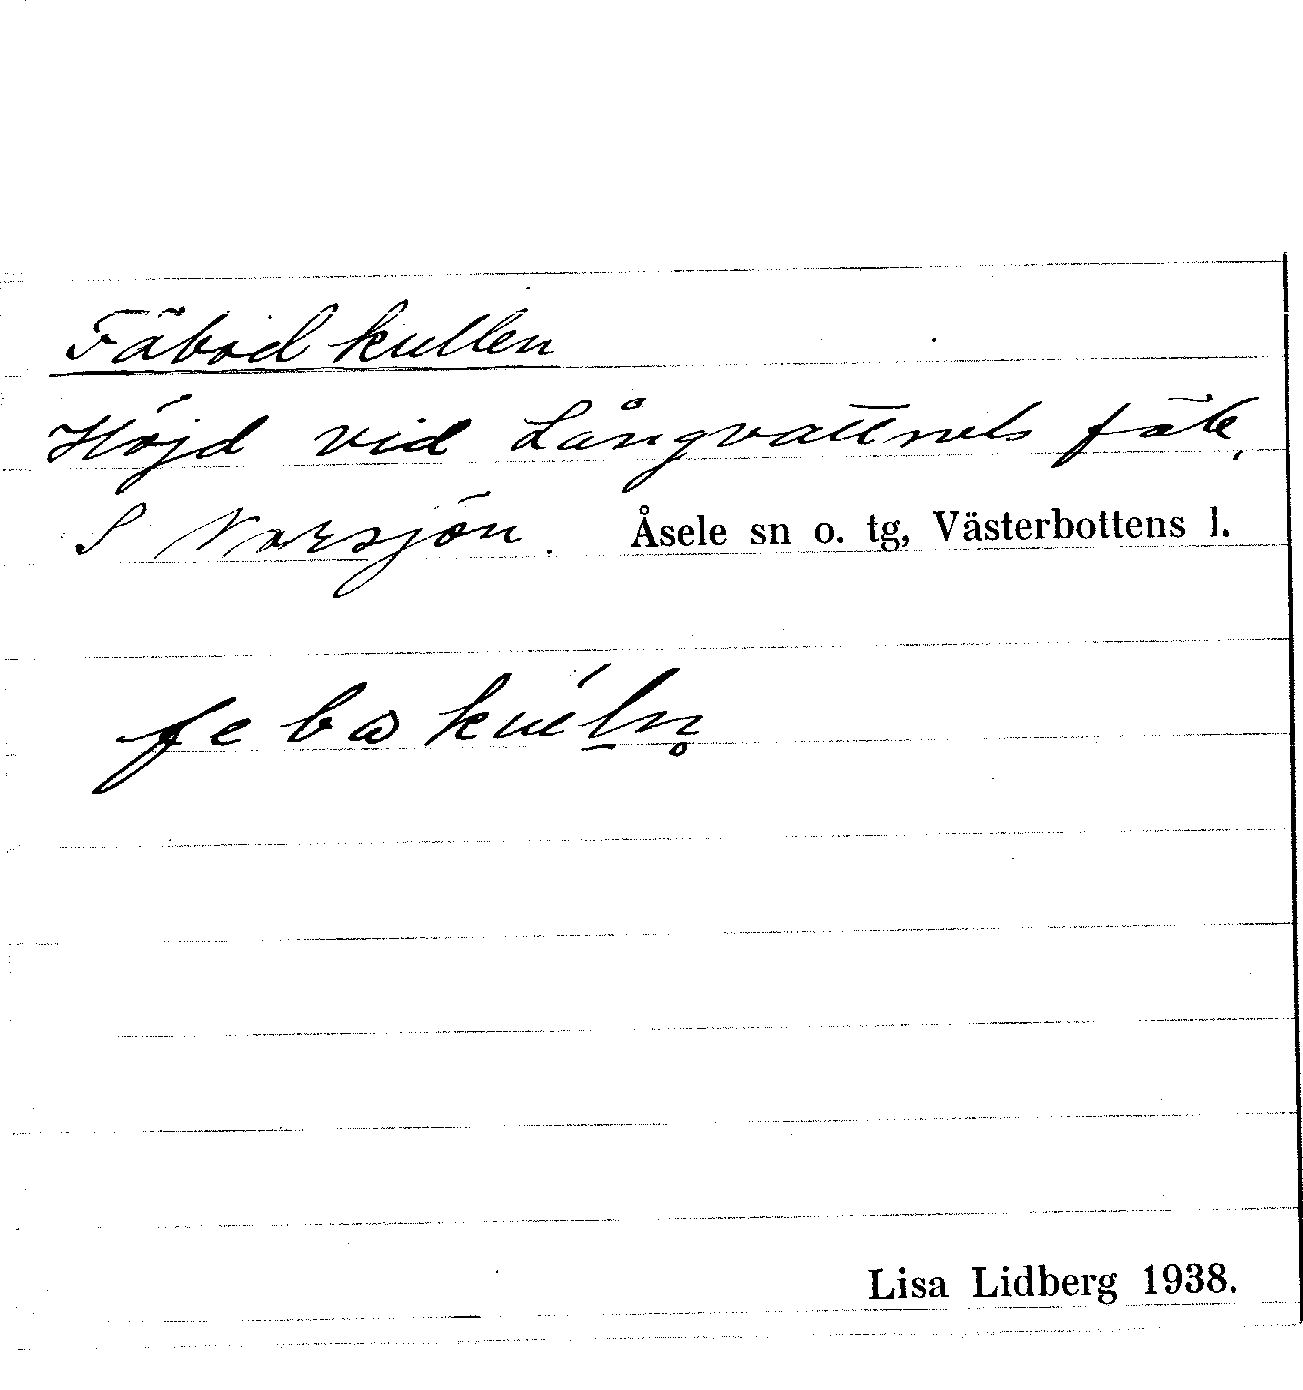 Fäbodkullen
Höjd vid Långvattnets fäb.
S Norsjön. Åsele sn o. tg, Västerbottens l.
Lisa Lidberg 1938.